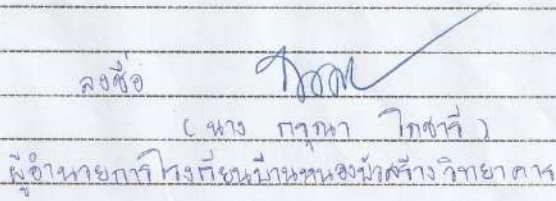 ลงชื่อ
( นาง กรุณา โภชารี )
ผู้อำนวยการโรงเรียนบ้านหนองบัวสร้างวิทยาคาร